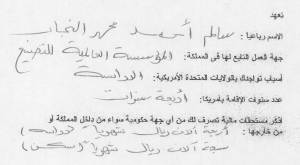 تعهد
الاسم رباعيا : سالم أحمد محمد
جهة العمل التابع لها في المملكة: المؤسسة العالمية للتصنيع
أسباب تواجدك بالولايات المتحدة الأمريكية: الدراسة
عدد سنوات الإقامة بأمريكا: أربعة سنوات
اذكر مستحقات مالية تصرف لك من أي جهة حكومية سواء من داخل المملكة أو
من خارجها: أربعة آلاف ريال شهريا
سبعة آلاف ريال شهريا (سكن)